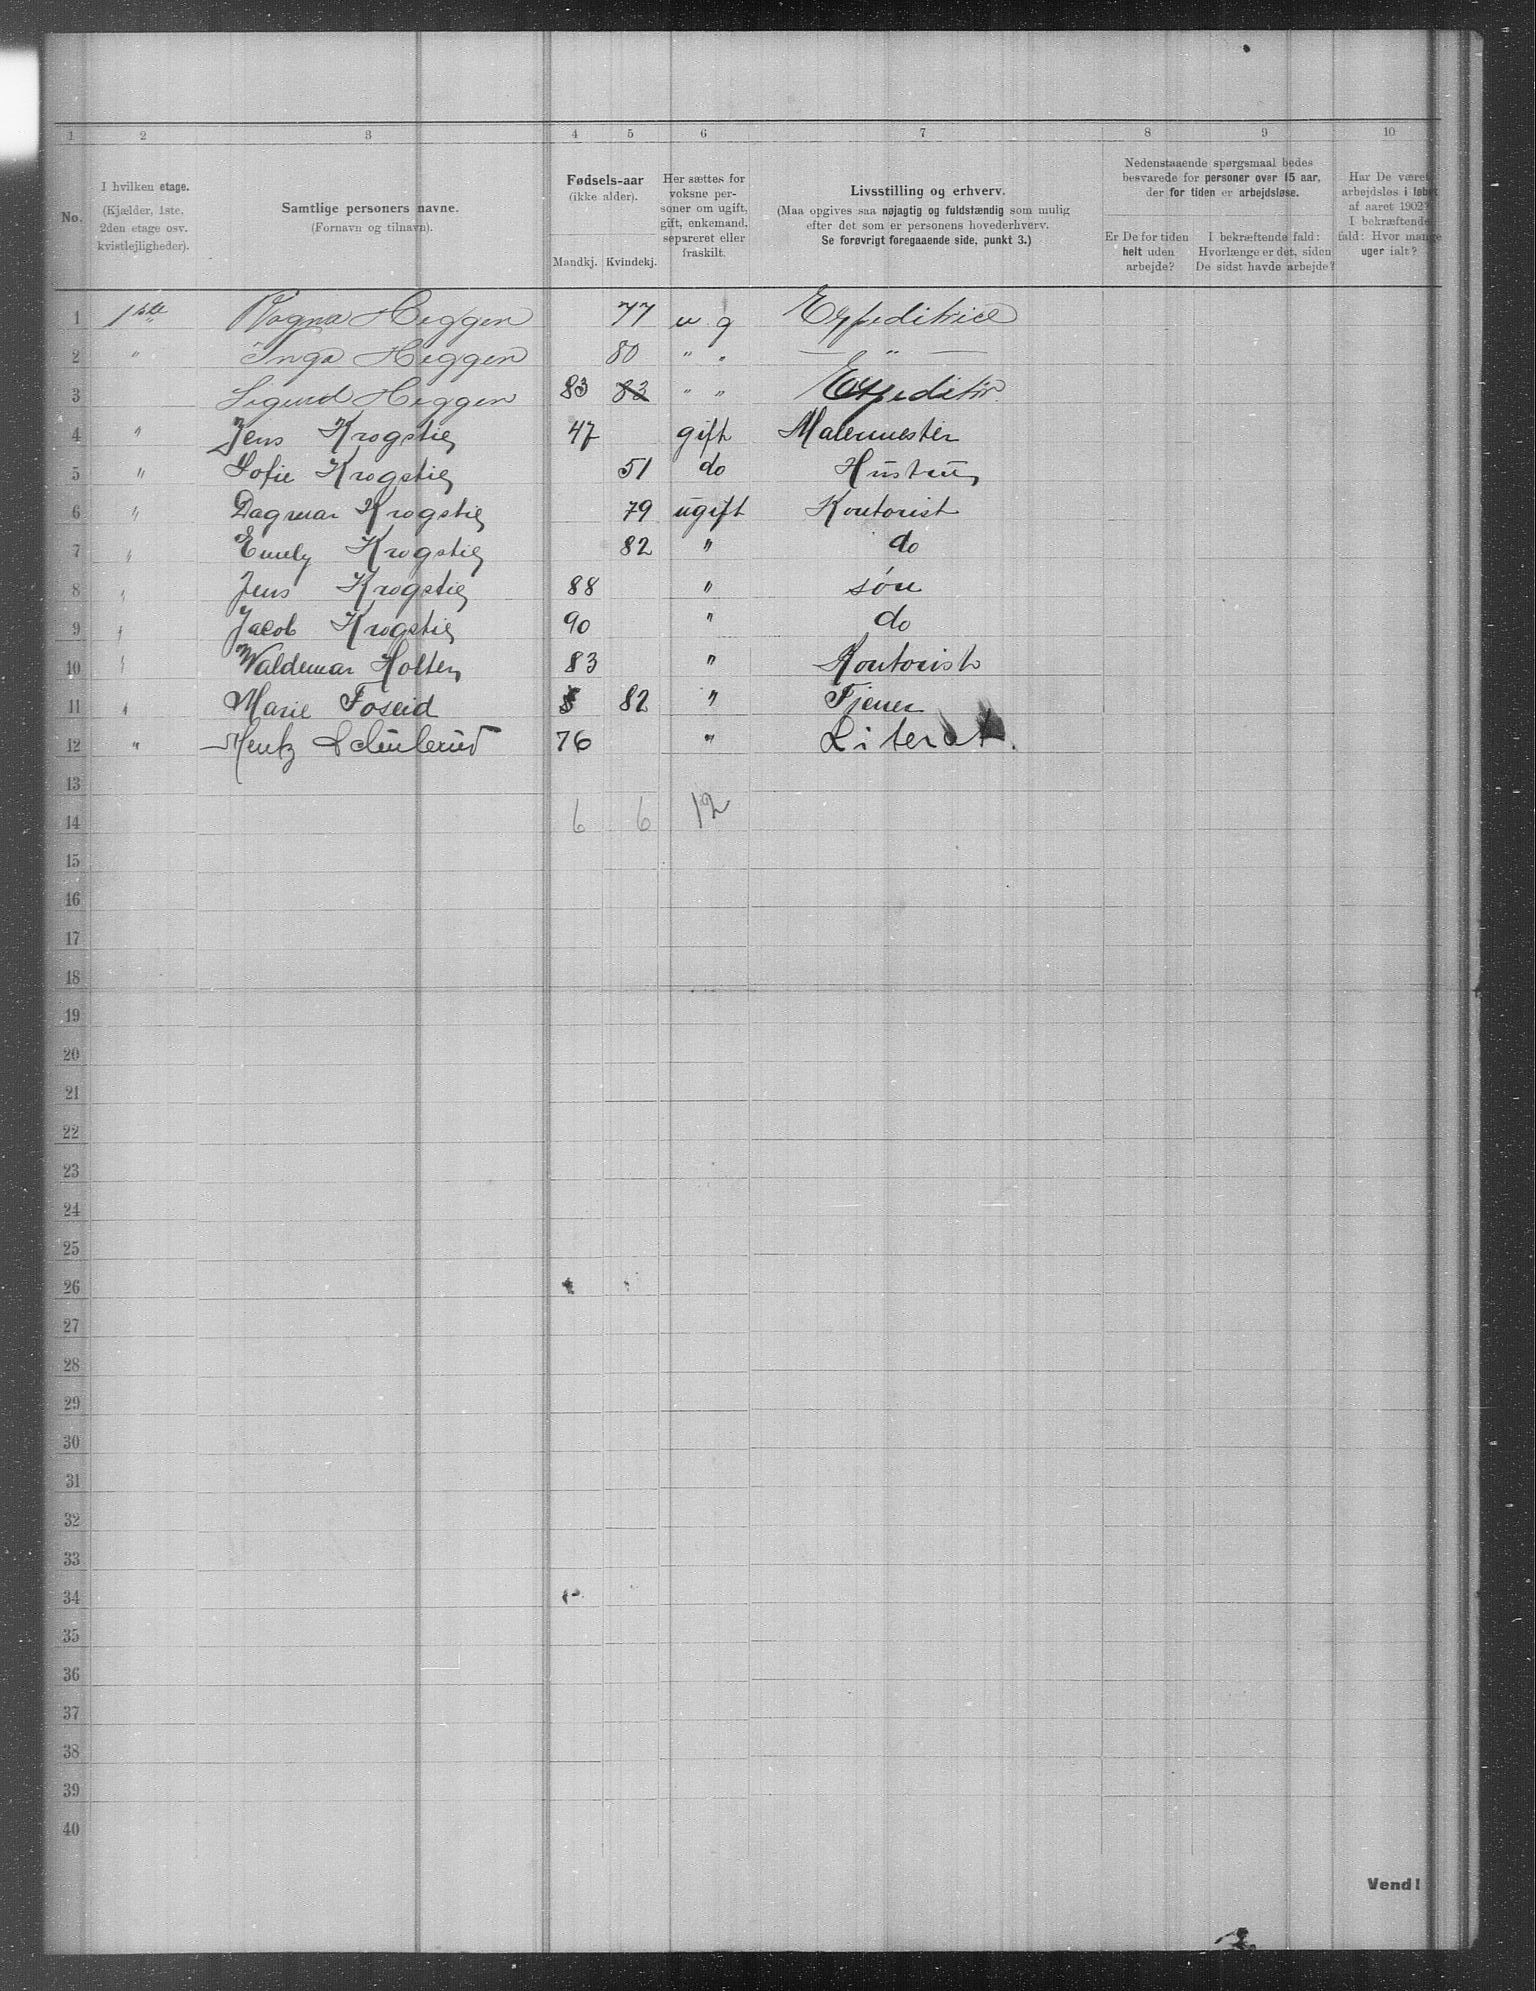 1 2 3 4 5 6 7 8 9 10
No.
I hvilken etage.
(Kjælder, 1ste.
2den etage osv.
kvistlejligheder).
Samtlige personers navne.
(Fornavn og tilnavn).
Fødsels-aar
(ikke alder).
Mandkj. Kvindekj.
Her sættes for
voksne per-
soner om ugift,
gift, enkemand,
separeret eller
fraskilt.
Livsstilling og erhverv.
(Maa opgives saa nøjagtig og fuldstændig som mulig
efter det som er personens hovederhverv.
Se forøvrigt foregaaende side, punkt 3.)
Nedenstaaende spørgsmaal bedes
besvarede for personer over 15 aar,
der for tiden er arbejdsløse.
Er De for tiden
helt uden
arbejde?
I bekræftende fald:
Hvorlænge er det, siden
De sidst havde arbejde?
Har De været
arbejdsløs i løbet
af aaret 1902?
I bekræftende
fald: Hvor mange
uger ialt?
1 1ste Ragna Heggen 77 u g Expeditrice
2 " Inga Heggen 80 " " — " —
3 Sigurd Heggen 83 83 " " Expeditør.
4 " Jens Krogstie 47 gift Malermester
5 " Sofie Krogstie 51 do Hustru
6 " Dagmar Krogstie 79 ugift Kontorist
7 " Emely Krogstie 82 " do
8 " Jens Krogstie 88 " søn
9 " Jacob Krogstie 90 " do
10 " Waldemar Holten 83 " Kontorist
11 " Marie Foseid 82 " Tjener
12 " Mentz Schulerud 76 " Literat.
13
14 6 6 12
15
16
17
18
19
20
21
22
23
24
25
26
27
28
29
30
31
32
33
34
35
36
37
38
39
40
Vend!